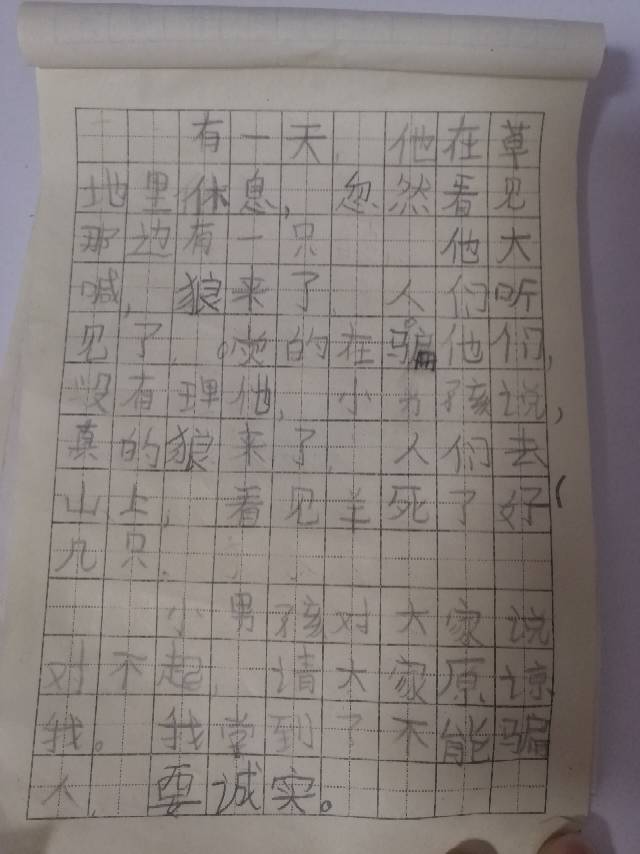 有一天，他在草
地里休息，忽然看见
那边有一只 他大
喊，狼来了，人们听
见了，的在骗他们，
没有理他，小孩说，
真的狼来了，人们去
山上，看见羊死了好
几只。
小男孩对大家说
对不起，请大家原谅
我。我学到了不能骗
人，要诚实。